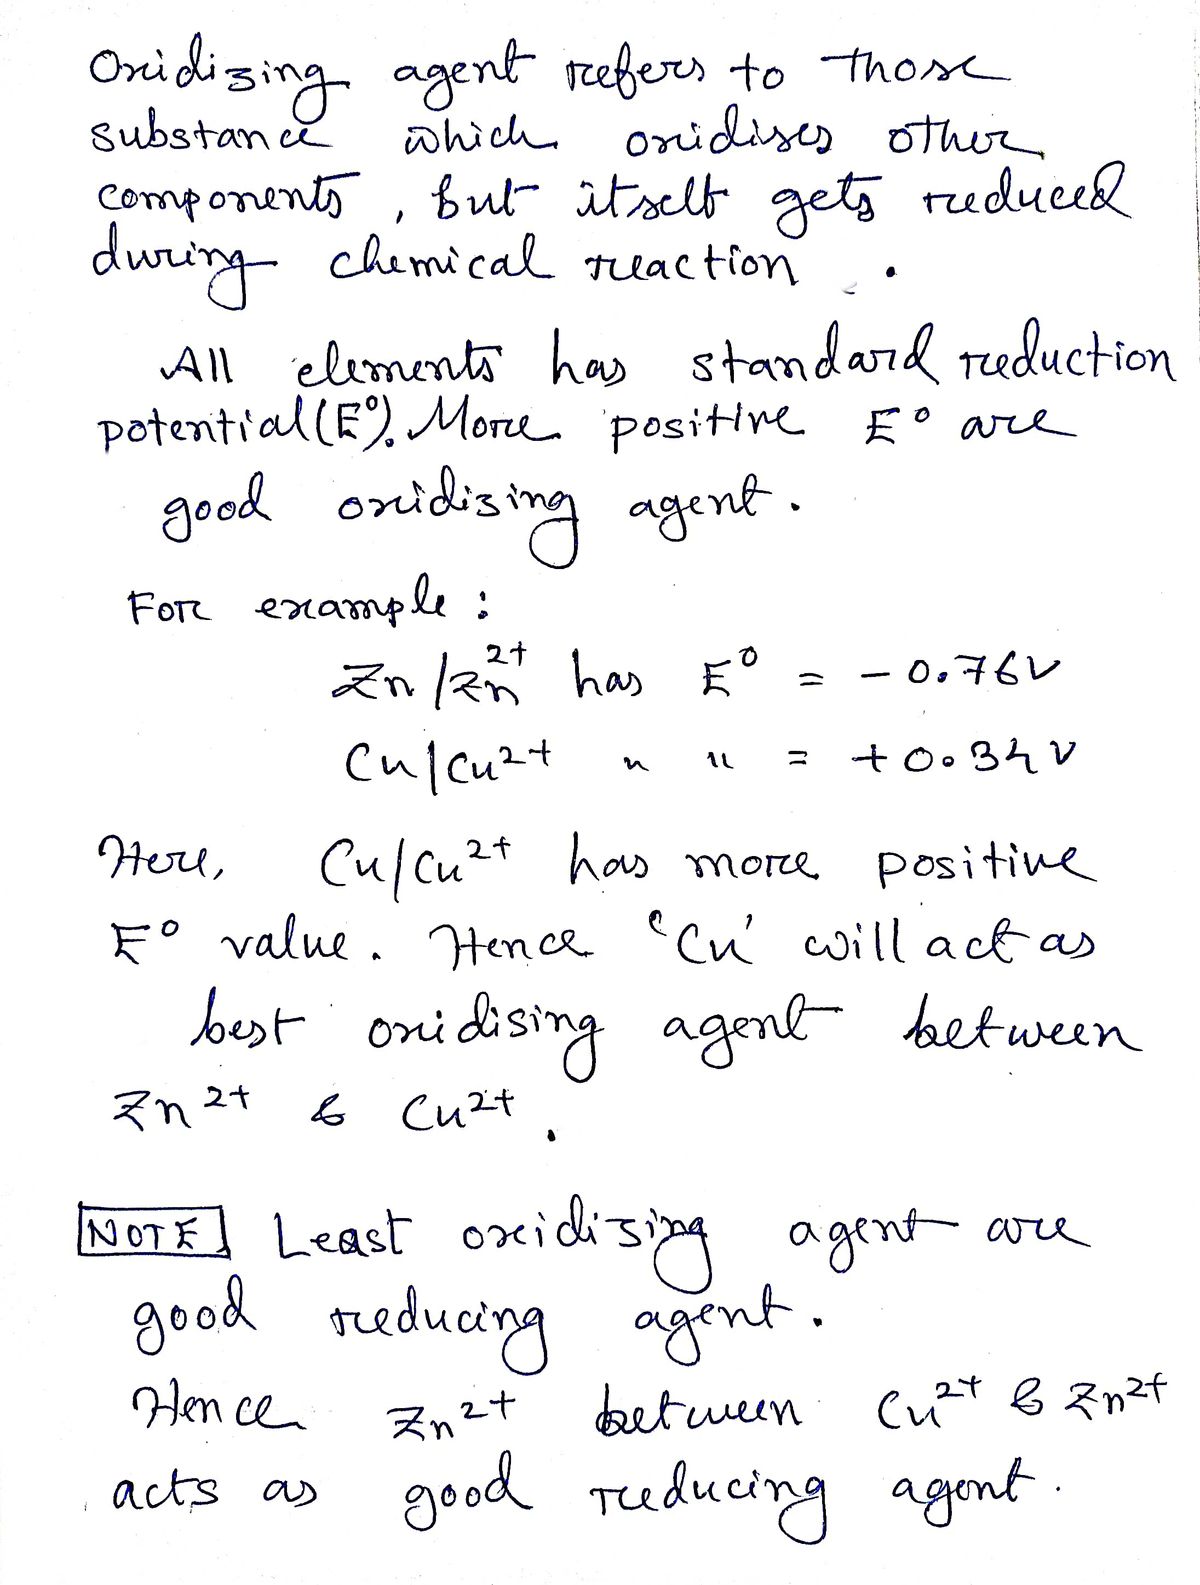 Oxidizing agent refers to those
substance which oxidises other
components, but itself gets reduced
during chemical reaction .
All elements has standard reduction
potential (E°). More positive E° are
good oxidizing agent.
For example :
Zn/Zn²⁺ has E° = -0.76V
Cu|Cu²⁺ " " = +0.34V
Here, Cu/Cu²⁺ has more positive
E° value. Hence 'Cu' will act as
best oxidising agent between
Zn²⁺ & Cu²⁺.
NOTE Least oxidizing agent are
good reducing agent.
Hence Zn²⁺ between Cu²⁺ & Zn²⁺
acts as good reducing agent.